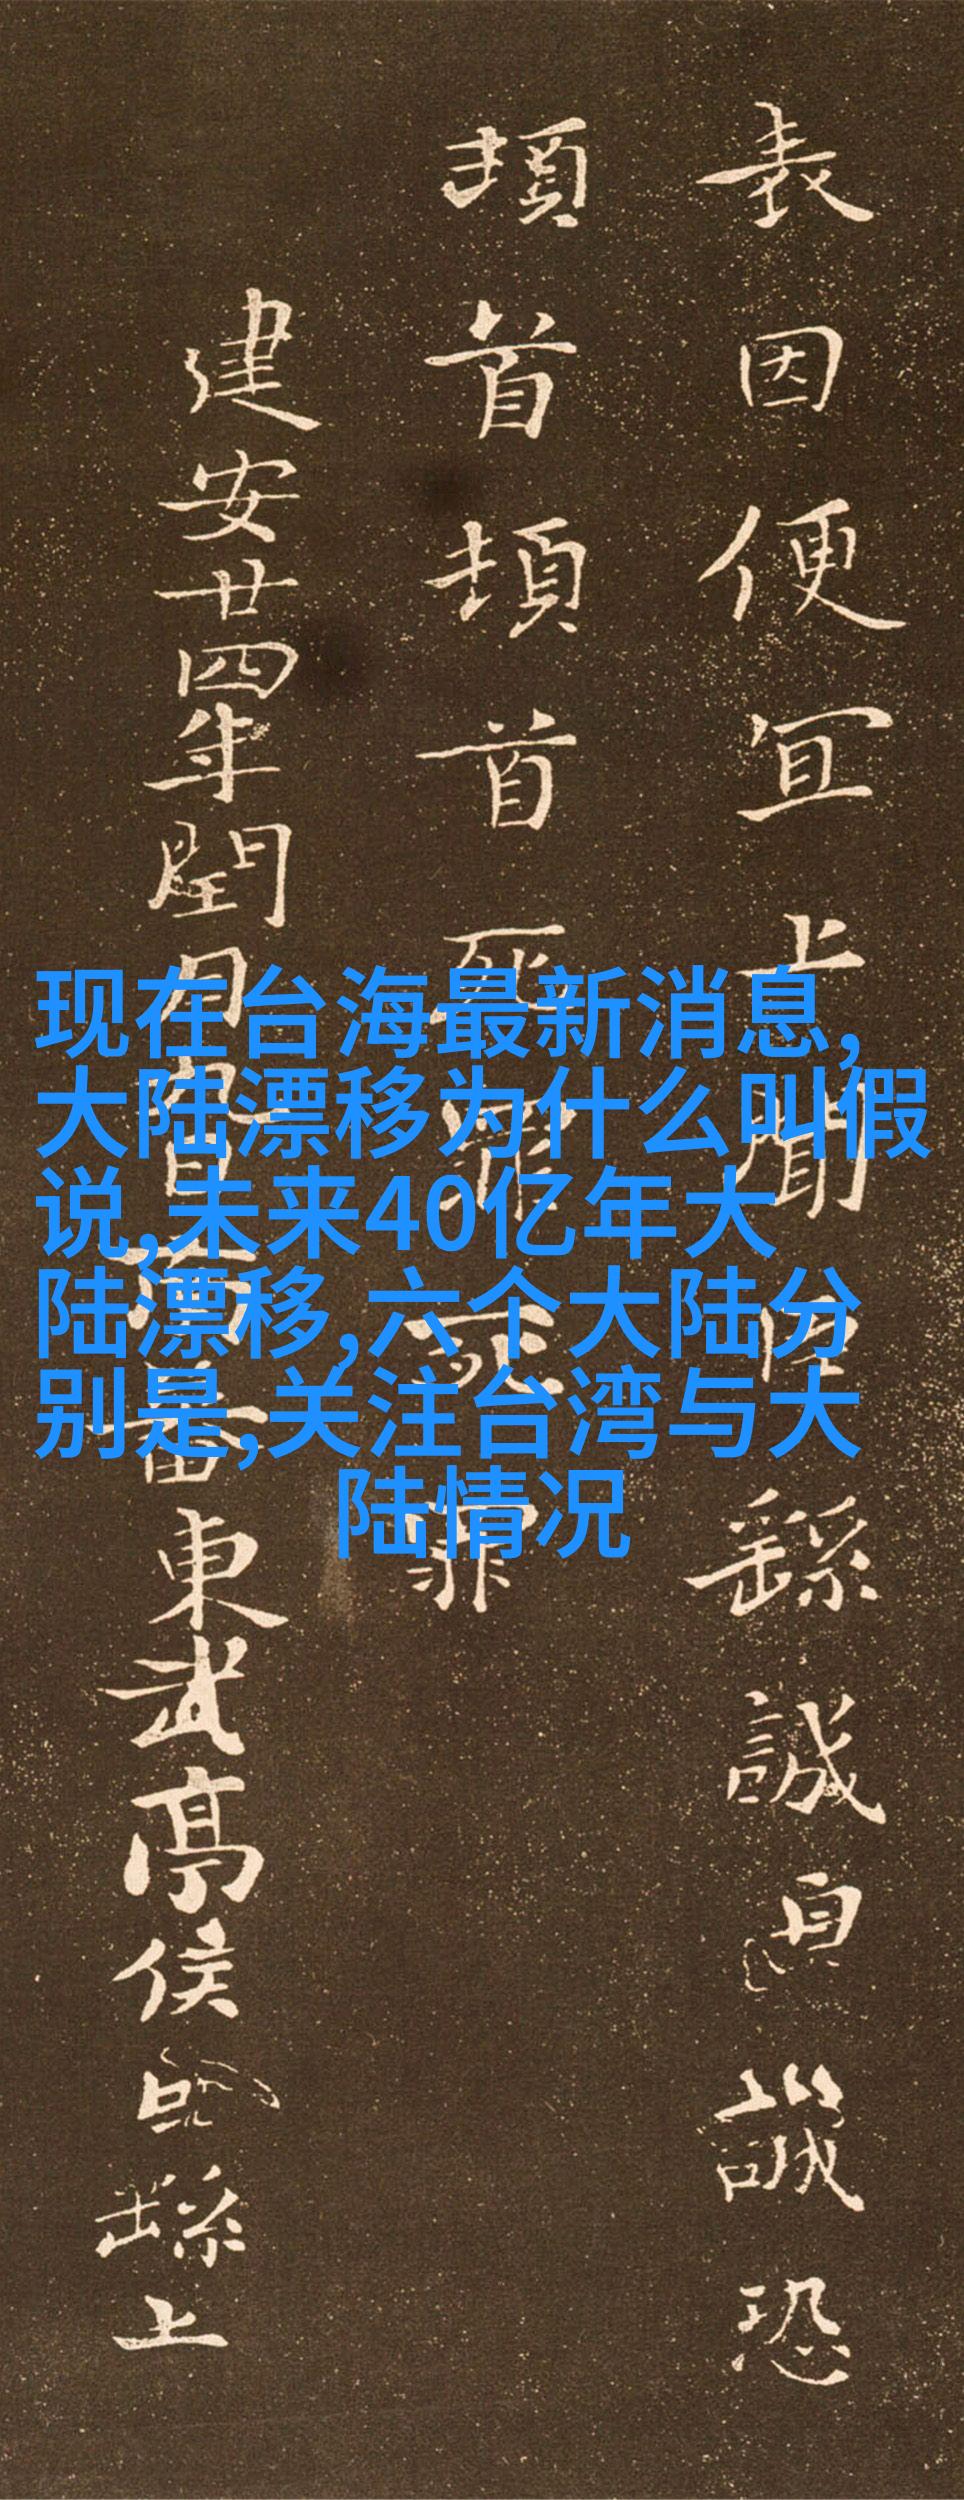 现在台海最新消息,
大陆漂移为什么叫假
说,未来40亿年大
陆漂移,六个大陆分
别是,关注台湾与大
陆情况
表因便宜上聞臣繇誠誠恐
頓首頓首死罪死罪
建安廿四年閏月日南蕃東武亭侯臣繇上